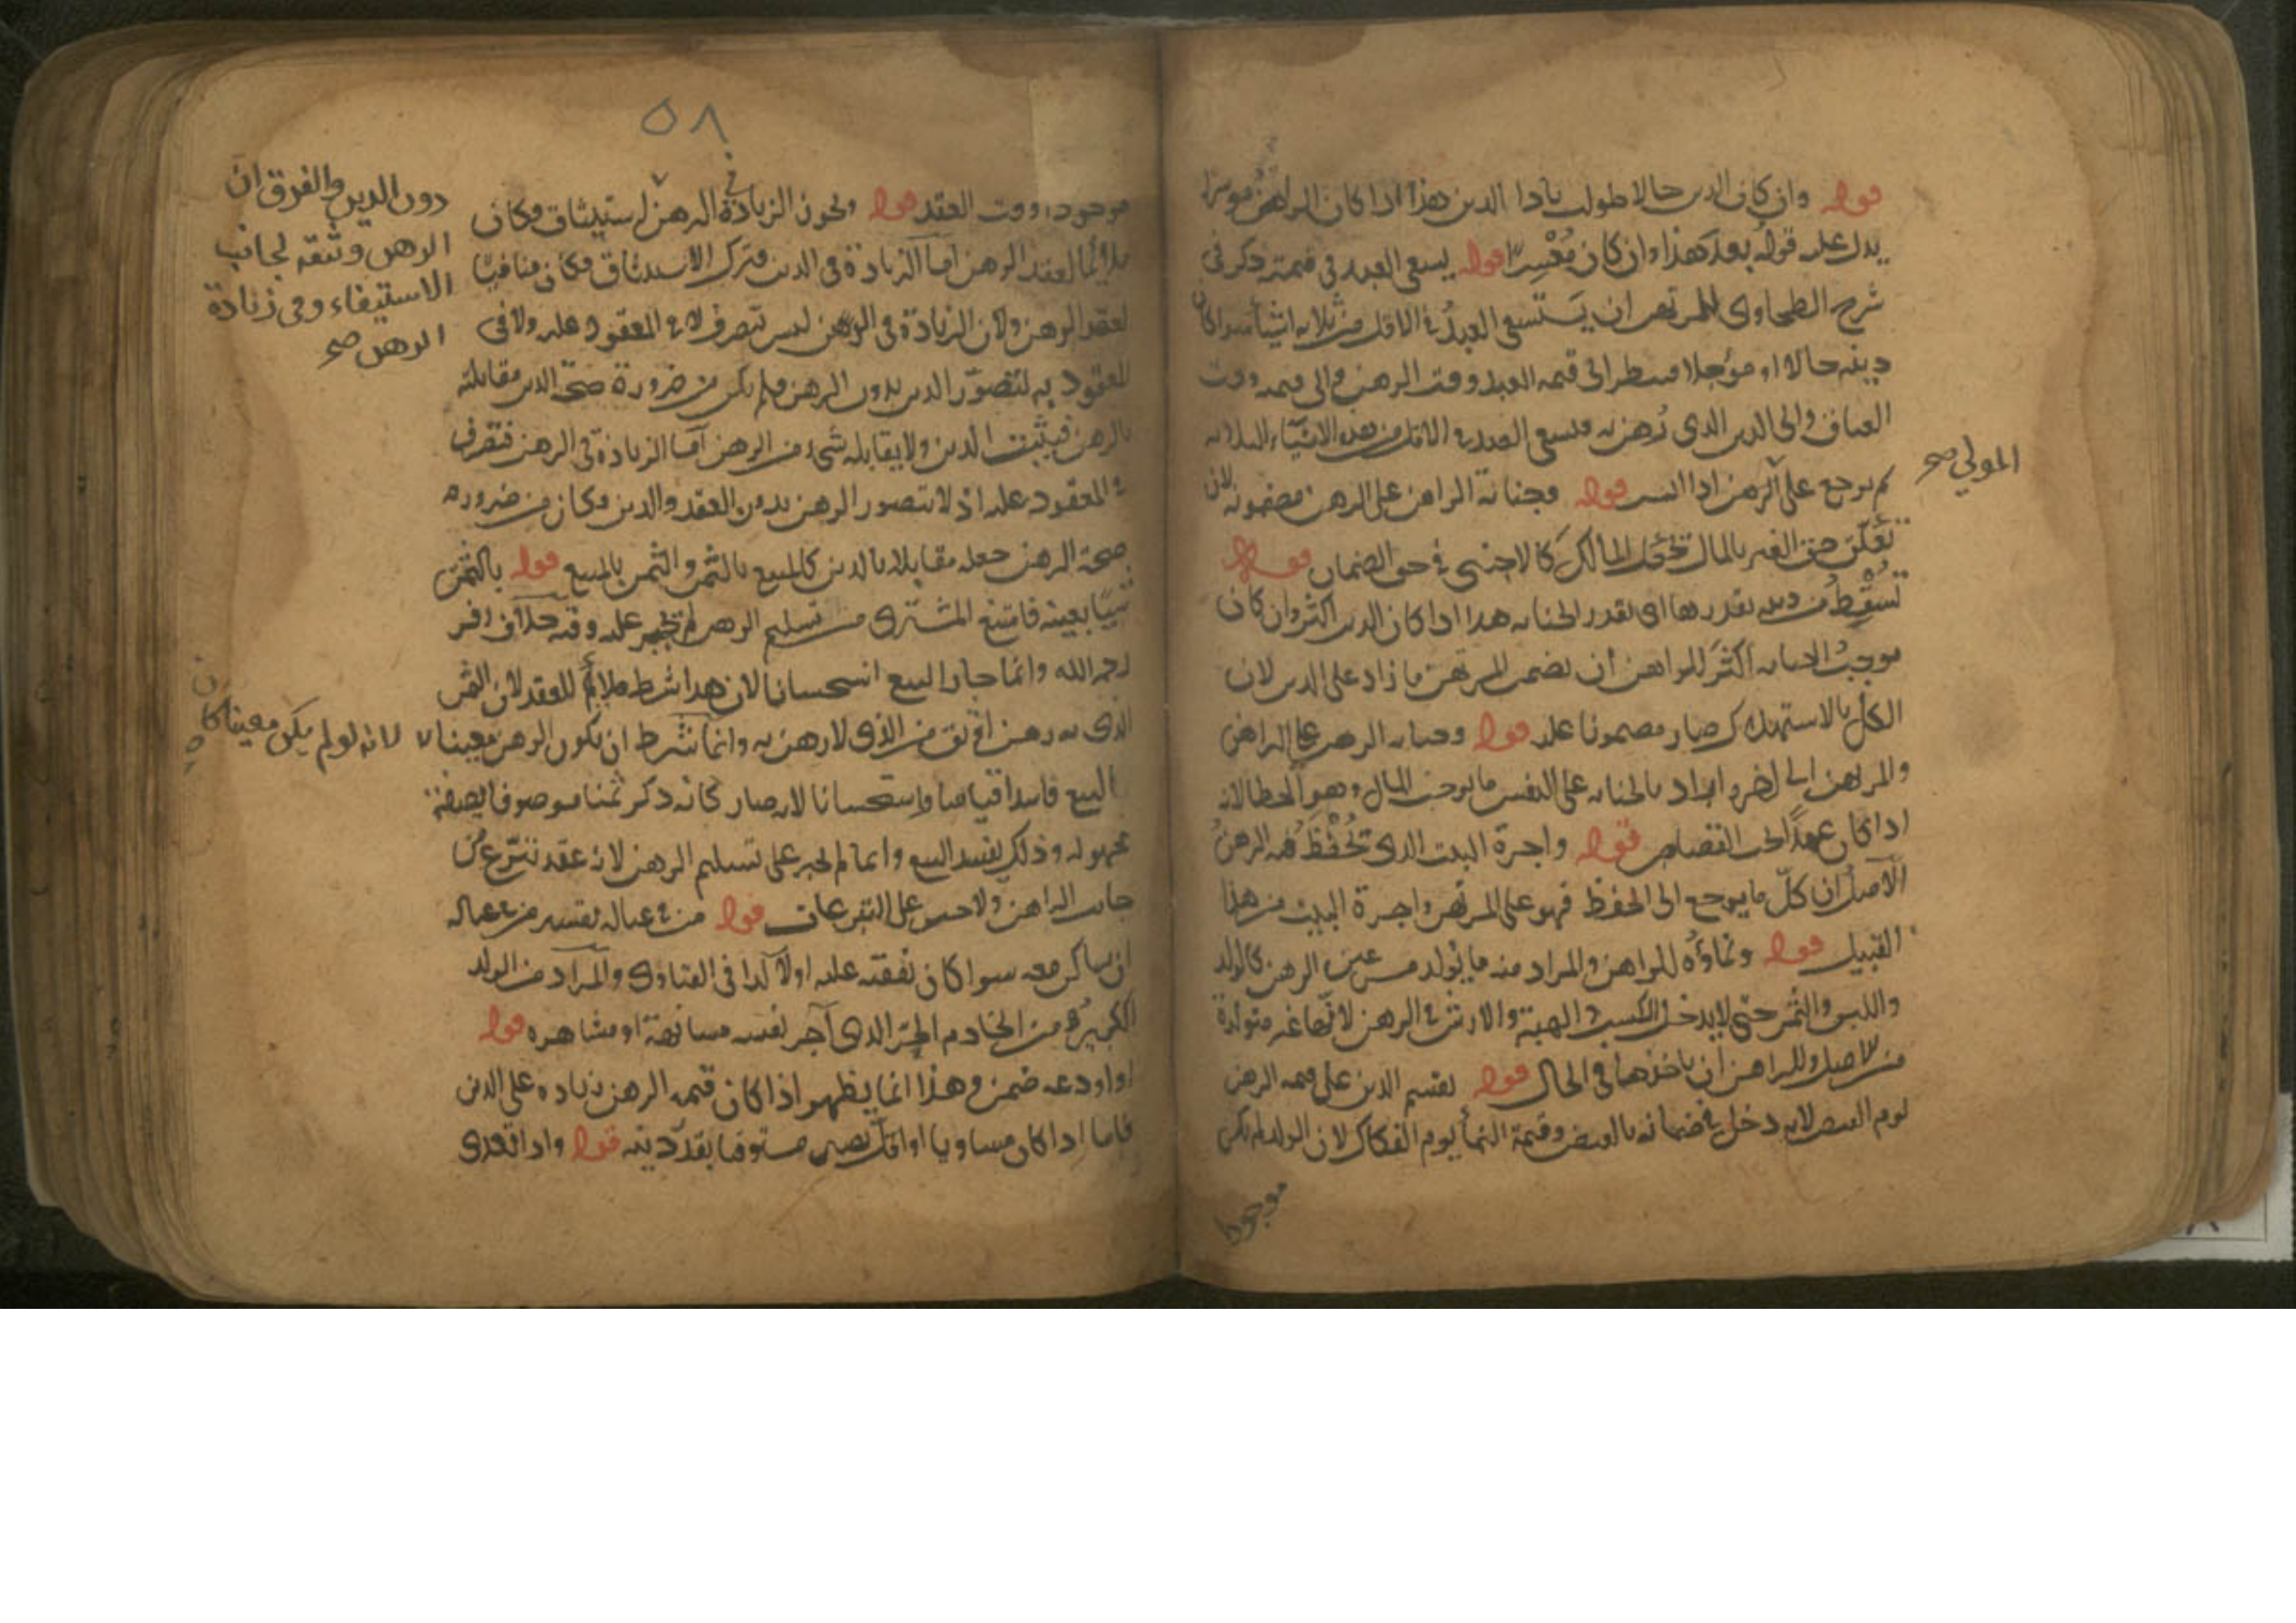 قوله وان كان الدين حالا طولب باداء الدين هذا اذا كان الراهن موسرا
يدل عليه قوله بعد هذا وان كان معسرا قوله يسعى العبد في قيمته ذكر في
شرح الطحاوي للمرتهن ان يستسعي العبد في الاقل من ثلاثة اشياء سوا كان
دينه حالا او مؤجلا وينظر الى قيمة العبد وقت الرهن والى قيمته وقت
العتاق والى الدين الذي رهن به فيسعى العبد في الاقل من هذه الاشياء الثلاثة
ثم يرجع على الراهن اذا ايسر قوله وجناية الراهن على الرهن مضمونة لان
المولى صح
تعلق حق الغير بالمال يجعل المالك كالاجنبي في حق الضمان قوله
تسقط من دينه بقدرها اي بقدر الجناية هذا اذا كان الدين اكثر وان كان
موجب الجناية اكثر للراهن ان يضمن المرتهن ما زاد على الدين لان
الكل بالاستهلاك صار مضمونا عليه قوله وجناية الرهن على الراهن
والمرتهن الى اخره اراد بالجناية على النفس ما يوجب المال وهو الخطا لانه
اذا كان عمدا يجب القصاص قوله واجرة البيت الذي تحفظ فيه الرهن
الاصل ان كل ما يرجع الى الحفظ فهو على المرتهن واجرة البيت من هذا
القبيل قوله ونماؤه للراهن والمراد منه ما يتولد من عين الرهن كالولد
واللبن والثمر حتى لا يدخل الكسب والهبة والارش في الرهن لانها غير متولدة
من الاصل وللراهن ان ياخذها في الحال قوله يقسم الدين على قيمة الرهن
يوم القبض لانه دخل في ضمانه بالقبض وقيمة النماء يوم الفكاك لان الولد لم يكن
موجودا
٥٨
موجودا وقت العقد قوله ويجوز الزيادة في الرهن استيثاق وكان
دون الدين والفرق ان
الرهن وثيقة لجانب
الاستيفاء وفي زيادة
الرهن صح
ملائما لعقد الرهن اما الزيادة في الدين فترك الاستيثاق وكان منافيا
لعقد الرهن ولان الزيادة في الرهن ليس تصرف لا في المعقود عليه ولا في
المعقود به لتصور الدين بدون الرهن ولم يكن من ضرورة صحة الدين مقابلته
بالرهن فيثبت الدين ولا يقابله شيء من الرهن اما الزيادة في الرهن فتصرف
في المعقود عليه اذ لا يتصور الرهن بدون العقد والدين وكان من ضرورة
صحة الرهن جعله مقابلا بالدين كالمبيع بالثمن والثمن بالمبيع قوله بالثمن
شيئا بعينه فامتنع المشتري من تسليم الرهن لم يجبر عليه وفيه خلاف زفر
رحمه الله وانما جاز البيع استحسانا لان هذا شرط ملائم للعقد لان الثمن
الذي به رهن اوثق من الذي لا رهن به وانما شرط ان يكون الرهن معينا
لانه لو لم يكن معينا كان
البيع فاسدا قياسا واستحسانا لانه صار كانه ذكر ثمنا موصوفا بصفة
مجهولة وذلك يفسد البيع وانما لم يجبر على تسليم الرهن لانه عقد تبرع من
جانب الراهن ولا جبر على التبرعات قوله من في عياله تفسير من في عياله
ان يساكن معه سوا كان نفقته عليه او لا كذا في الفتاوى والمراد من الولد
الكبير ومن الخادم الحر الذي آجر نفسه مسانهة او مشاهرة قوله
او اودعه ضمن وهذا انما يظهر اذا كان قيمة الرهن زيادة على الدين
فاما اذا كان مساويا او اقل يصير مستوفيا بقدر دينه قوله واذا تعدى